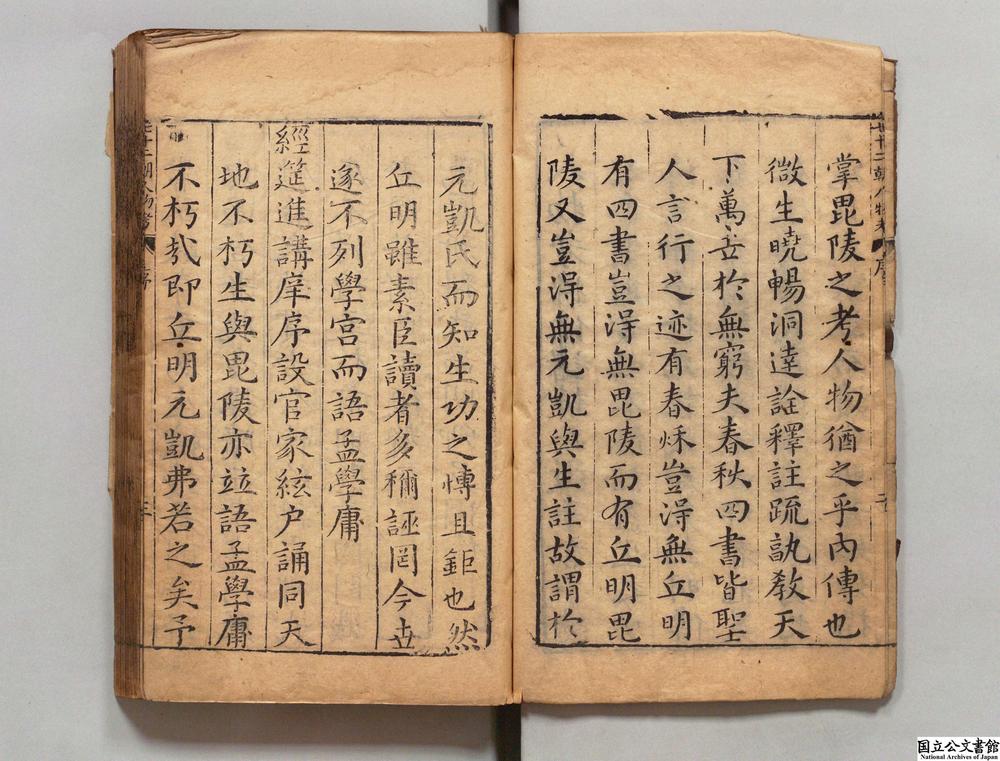 掌毘陵之考人物猶之乎內傳也
微生曉暢洞達詮釋註疏孰教天
下萬世於無窮夫春秋四書皆聖
人言行之迹有春秌豈淂無丘明
有四書豈淂無毘陵而有丘明毘
陵又豈淂無元凱與生註故謂於
元凱氏而知生功之慱且鉅也然
丘明雖素臣讀者多稱誣罔今世
遂不列學宮而語孟學庸
經筵進講庠序設官家絃户誦同天
地不朽生與毘陵亦竝語孟學庸
不朽矣即丘明元凱弗若之矣予
国立公文書館
National Archives of Japan